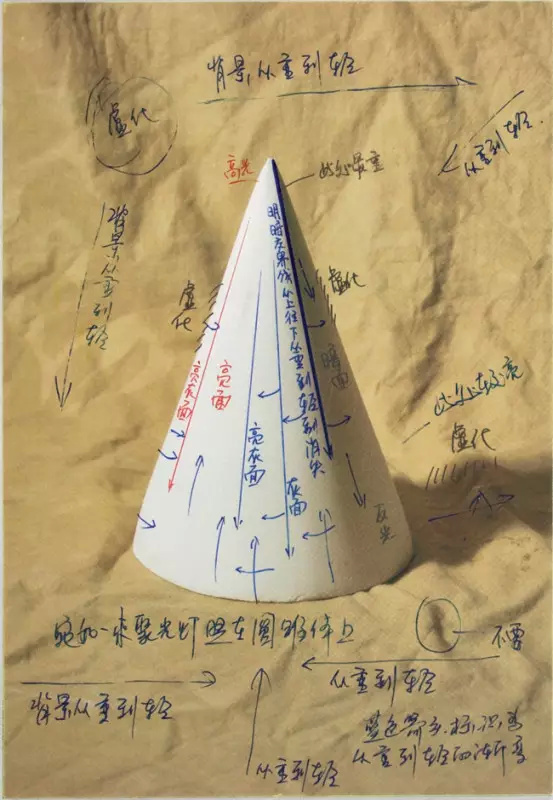 背景从重到轻
虚化
从重到轻.
高光
此处最重
背景从重到轻
明暗交界线从上往下从重到轻到消失
虚化
虚化
亮灰面
亮面
暗面
此处较亮
虚化
亮灰面
灰面
反光
宛如一束聚光灯照在圆锥体上
不要
从重到轻
背景从重到轻
从重到轻
蓝色箭头标识为
从重到轻的渐变